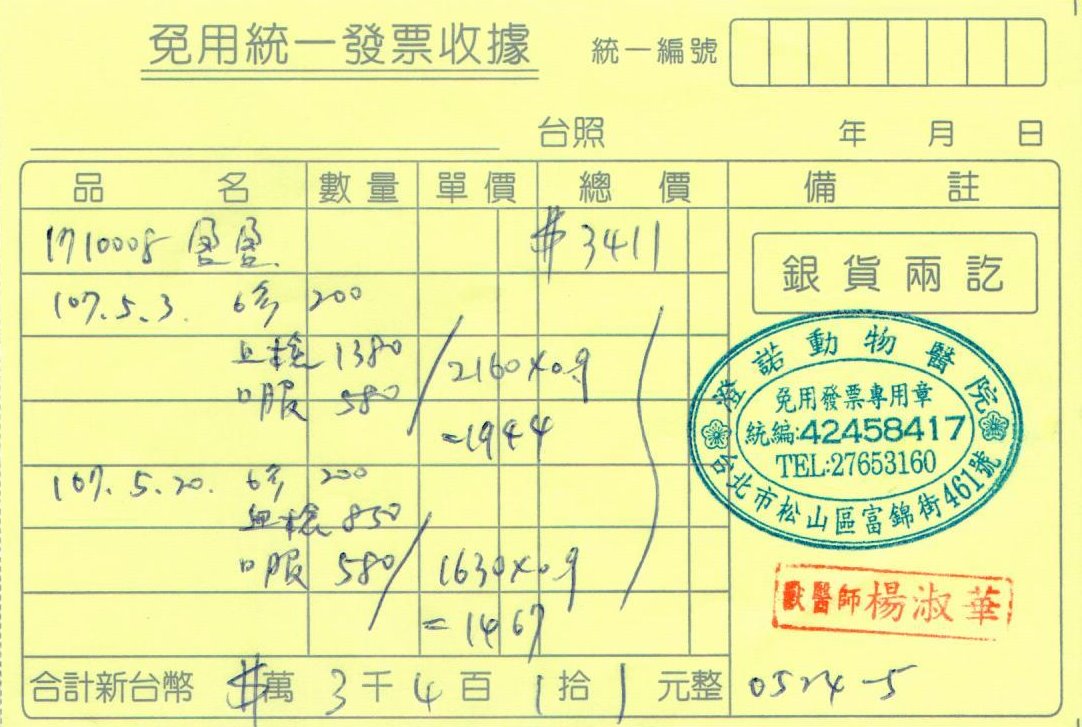 免用統一發票收據
統一編號
台照 年 月 日
品名 數量 單價 總價 備註
1710008 $3411
銀貨兩訖
107.5.3. 診 200
血檢 1380
口服 580
2160×0.9
=1944
107.5.20. 診 200
血檢 850
口服 580
1630×0.9
=1467
合計新台幣 $萬 3千 4百 1拾 1元整
0524-5
澄諾動物醫院
免用發票專用章
統編:42458417
TEL:27653160
台北市松山區富錦街461號
獸醫師楊淑華